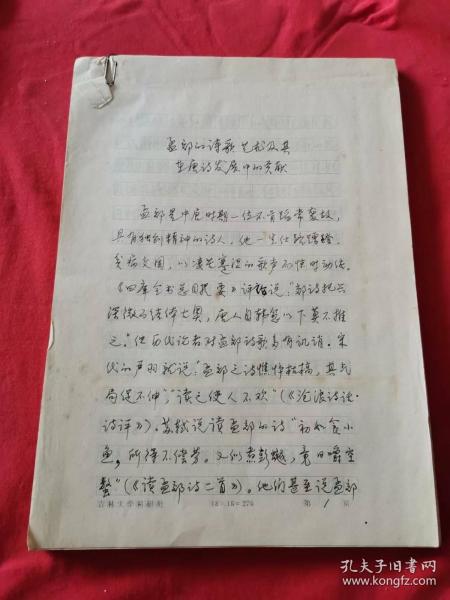 孟郊的诗歌艺术及其
在唐诗发展中的贡献
孟郊是中唐时期一位不肯蹈常袭故，
具有独创精神的诗人，他一生仕跎蹭蹬，
贫病交困，以凄苦寒涩的歌声而惊时动俗。
《四库全书总目提要》评说：“郊诗托兴
深微而结体古奥，唐人自韩愈以下莫不推
之。”但历代论者对孟郊诗歌多有讥诮。宋
代的严羽就说：“孟郊之诗憔悴枯槁，其气
局促不伸”，“读之使人不欢”（《沧浪诗话·
诗评》）。苏轼说读孟郊的诗“初如食小
鱼，所得不偿劳。又似煮彭𧑅，竟日嚼空
螯”（《读孟郊诗二首》）。他们甚至说孟郊
吉林大学 18×15=270 第1页
孔夫子旧书网
book.kongfz.com